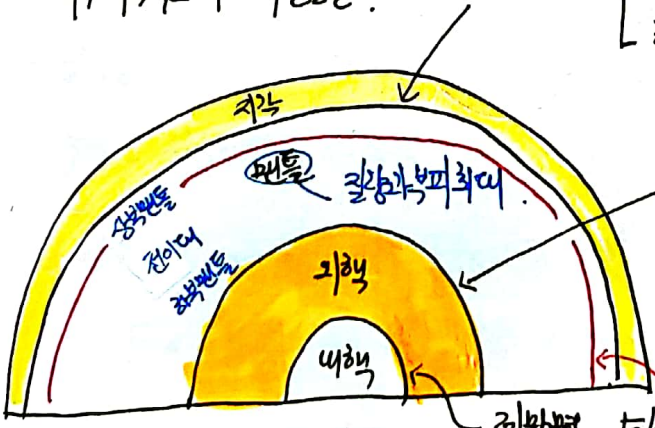 지각
맨틀 질량과 부피 최대.
상부맨틀
전이대
하부맨틀
외핵
내핵